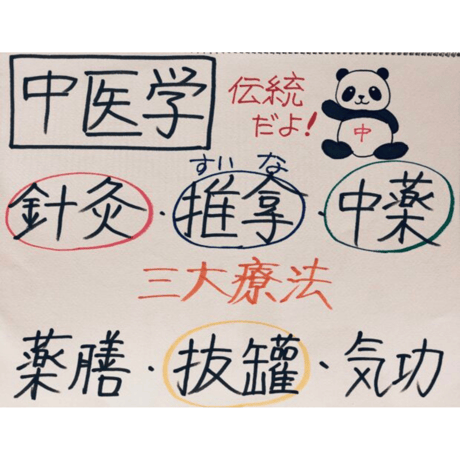 中医学
伝統
だよ!
中
すいな
針灸・推拿・中薬
三大療法
薬膳・抜罐・気功